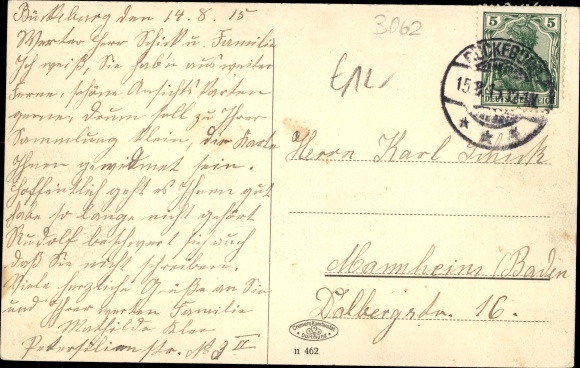 Bückeburg den 14.8.15
Werter Herr Schick u. Familie
Ich weiß, Sie hab'n aus weiter
Ferne, schöne Ansichtskarten
gerne, drum soll zu Ihrer
Sammlung klein, die Karte
Ihnen gewidmet sein.
Hoffentlich geht es Ihnen gut
habe so lange nicht gehört
Rudolf beschwert sich auch
daß Sie nicht schreiben.
Viele herzliche Grüße an Sie
und Ihrer werten Familie
Mathilde Klee
Petersilienstr. No 3 II
3062
5 5
BÜCKEBURG
15.8.15
DEUTSCHES REICH
Herrn Karl Schick
Mannheim/Baden
Dalbergstr. 16.
Cramers Kunstanstalt
Dortmund
n 462